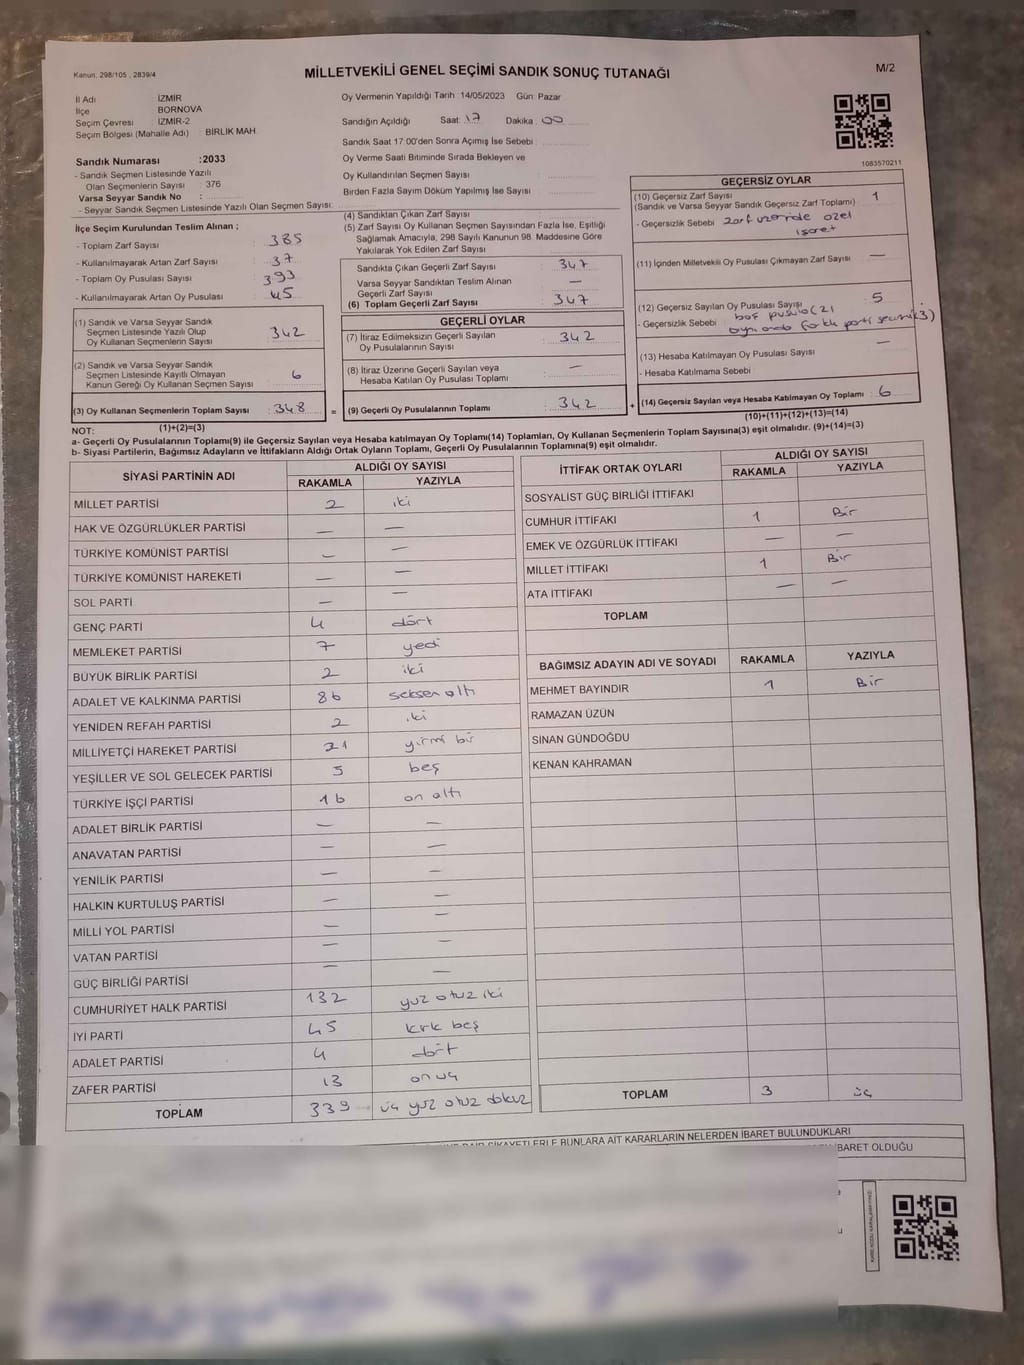 Kanun: 298/105 , 2839/4
MİLLETVEKİLİ GENEL SEÇİMİ SANDIK SONUÇ TUTANAĞI
M/2
İl Adı İZMİR
İlçe BORNOVA
Seçim Çevresi İZMİR-2
Seçim Bölgesi (Mahalle Adı) : BİRLİK MAH.
Oy Vermenin Yapıldığı Tarih : 14/05/2023 Gün: Pazar
Sandığın Açıldığı Saat: 17 Dakika: 00
Sandık Saat 17:00'den Sonra Açımış İse Sebebi :
Oy Verme Saati Bitiminde Sırada Bekleyen ve
Oy Kullandırılan Seçmen Sayısı :
Birden Fazla Sayım Döküm Yapılmış İse Sayısı :
1083570211
Sandık Numarası :2033
- Sandık Seçmen Listesinde Yazılı
Olan Seçmenlerin Sayısı : 376
Varsa Seyyar Sandık No :
- Seyyar Sandık Seçmen Listesinde Yazılı Olan Seçmen Sayısı:
İlçe Seçim Kurulundan Teslim Alınan ;
- Toplam Zarf Sayısı : 385
- Kullanılmayarak Artan Zarf Sayısı : 37
- Toplam Oy Pusulası Sayısı : 393
- Kullanılmayarak Artan Oy Pusulası : 45
(1) Sandık ve Varsa Seyyar Sandık
Seçmen Listesinde Yazılı Olup
Oy Kullanan Seçmenlerin Sayısı : 342
(2) Sandık ve Varsa Seyyar Sandık
Seçmen Listesinde Kayıtlı Olmayan
Kanun Gereği Oy Kullanan Seçmen Sayısı : 6
(3) Oy Kullanan Seçmenlerin Toplam Sayısı : 348
(4) Sandıktan Çıkan Zarf Sayısı :
(5) Zarf Sayısı Oy Kullanan Seçmen Sayısından Fazla İse, Eşitliği
Sağlamak Amacıyla, 298 Sayılı Kanunun 98. Maddesine Göre
Yakılarak Yok Edilen Zarf Sayısı :
Sandıkta Çıkan Geçerli Zarf Sayısı : 347
Varsa Seyyar Sandıktan Teslim Alınan
Geçerli Zarf Sayısı : —
(6) Toplam Geçerli Zarf Sayısı : 347
GEÇERLİ OYLAR
(7) İtiraz Edilmeksizin Geçerli Sayılan
Oy Pusulalarının Sayısı : 342
(8) İtiraz Üzerine Geçerli Sayılan veya
Hesaba Katılan Oy Pusulası Toplamı : —
= (9) Geçerli Oy Pusulalarının Toplamı : 342
GEÇERSİZ OYLAR
(10) Geçersiz Zarf Sayısı 1
(Sandık ve Varsa Seyyar Sandık Geçersiz Zarf Toplamı) :
- Geçersizlik Sebebi : zarf üzeride özel
işaret
(11) İçinden Milletvekili Oy Pusulası Çıkmayan Zarf Sayısı : —
(12) Geçersiz Sayılan Oy Pusulası Sayısı : 5
- Geçersizlik Sebebi : boş pusula(2)
aynı anda farklı parti seçimi(3)
(13) Hesaba Katılmayan Oy Pusulası Sayısı : —
- Hesaba Katılmama Sebebi
+ (14) Geçersiz Sayılan veya Hesaba Katılmayan Oy Toplamı : 6
NOT: (1)+(2)=(3)
(10)+(11)+(12)+(13)=(14)
a- Geçerli Oy Pusulalarının Toplamı(9) ile Geçersiz Sayılan veya Hesaba katılmayan Oy Toplamı(14) Toplamları, Oy Kullanan Seçmenlerin Toplam Sayısına(3) eşit olmalıdır. (9)+(14)=(3)
b- Siyasi Partilerin, Bağımsız Adayların ve İttifakların Aldığı Ortak Oyların Toplamı, Geçerli Oy Pusulalarının Toplamına(9) eşit olmalıdır.
SİYASİ PARTİNİN ADI ALDIĞI OY SAYISI
RAKAMLA YAZIYLA
MİLLET PARTİSİ 2 iki
HAK VE ÖZGÜRLÜKLER PARTİSİ — —
TÜRKİYE KOMÜNİST PARTİSİ — —
TÜRKİYE KOMÜNİST HAREKETİ — —
SOL PARTİ — —
GENÇ PARTİ 4 dört
MEMLEKET PARTİSİ 7 yedi
BÜYÜK BİRLİK PARTİSİ 2 iki
ADALET VE KALKINMA PARTİSİ 86 seksen altı
YENİDEN REFAH PARTİSİ 2 iki
MİLLİYETÇİ HAREKET PARTİSİ 21 yirmi bir
YEŞİLLER VE SOL GELECEK PARTİSİ 5 beş
TÜRKİYE İŞÇİ PARTİSİ 16 on altı
ADALET BİRLİK PARTİSİ — —
ANAVATAN PARTİSİ — —
YENİLİK PARTİSİ — —
HALKIN KURTULUŞ PARTİSİ — —
MİLLİ YOL PARTİSİ — —
VATAN PARTİSİ — —
GÜÇ BİRLİĞİ PARTİSİ — —
CUMHURİYET HALK PARTİSİ 132 yüz otuz iki
İYİ PARTİ 45 kırk beş
ADALET PARTİSİ 4 dört
ZAFER PARTİSİ 13 on üç
TOPLAM 339 üç yüz otuz dokuz
İTTİFAK ORTAK OYLARI ALDIĞI OY SAYISI
RAKAMLA YAZIYLA
SOSYALİST GÜÇ BİRLİĞİ İTTİFAKI
CUMHUR İTTİFAKI 1 Bir
EMEK VE ÖZGÜRLÜK İTTİFAKI — —
MİLLET İTTİFAKI 1 Bir
ATA İTTİFAKI — —
TOPLAM
BAĞIMSIZ ADAYIN ADI VE SOYADI RAKAMLA YAZIYLA
MEHMET BAYINDIR 1 Bir
RAMAZAN ÜZÜN
SİNAN GÜNDOĞDU
KENAN KAHRAMAN
TOPLAM 3 üç
ŞİKAYETLERLE BUNLARA AİT KARARLARIN NELERDEN İBARET BULUNDUKLARI
İBARET OLDUĞU